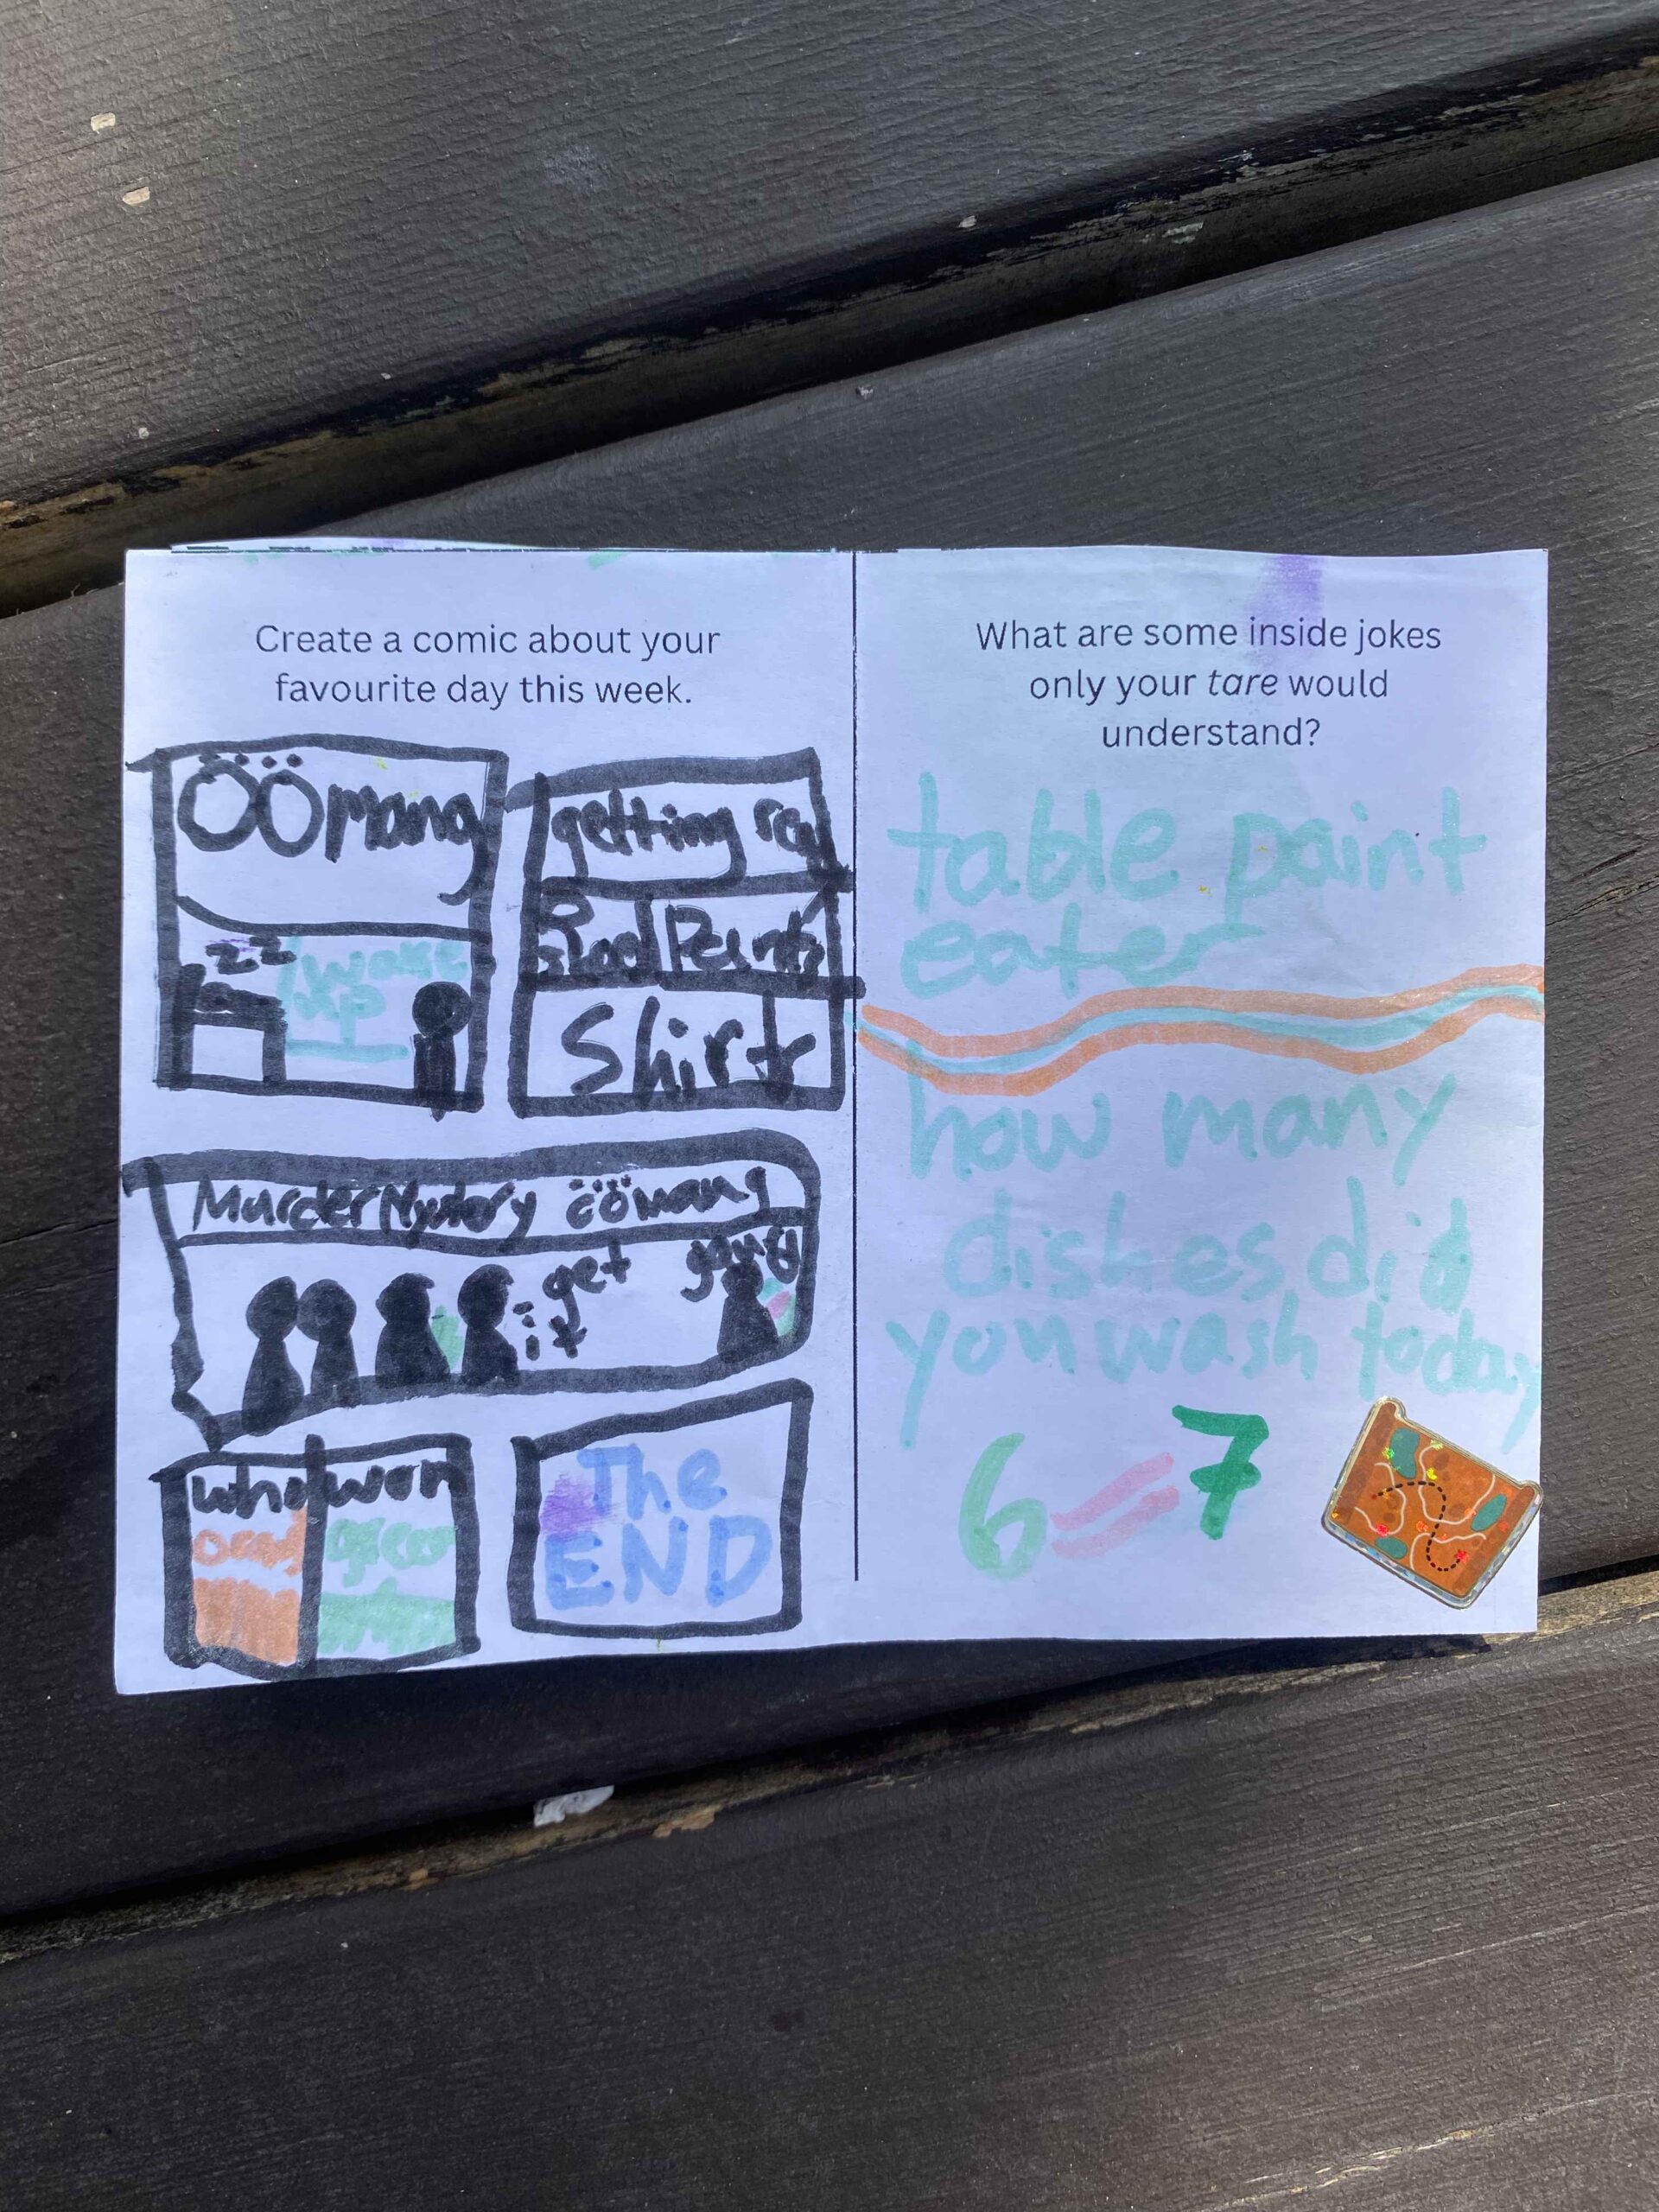 Create a comic about your
favourite day this week.
ÖÖmang
zz
wake
up
getting
Pants
Shirt
Murder Mystery öömang
get
it
who won
green
The
END
What are some inside jokes
only your tare would
understand?
table paint
eater
how many
dishes did
you wash today
6 7